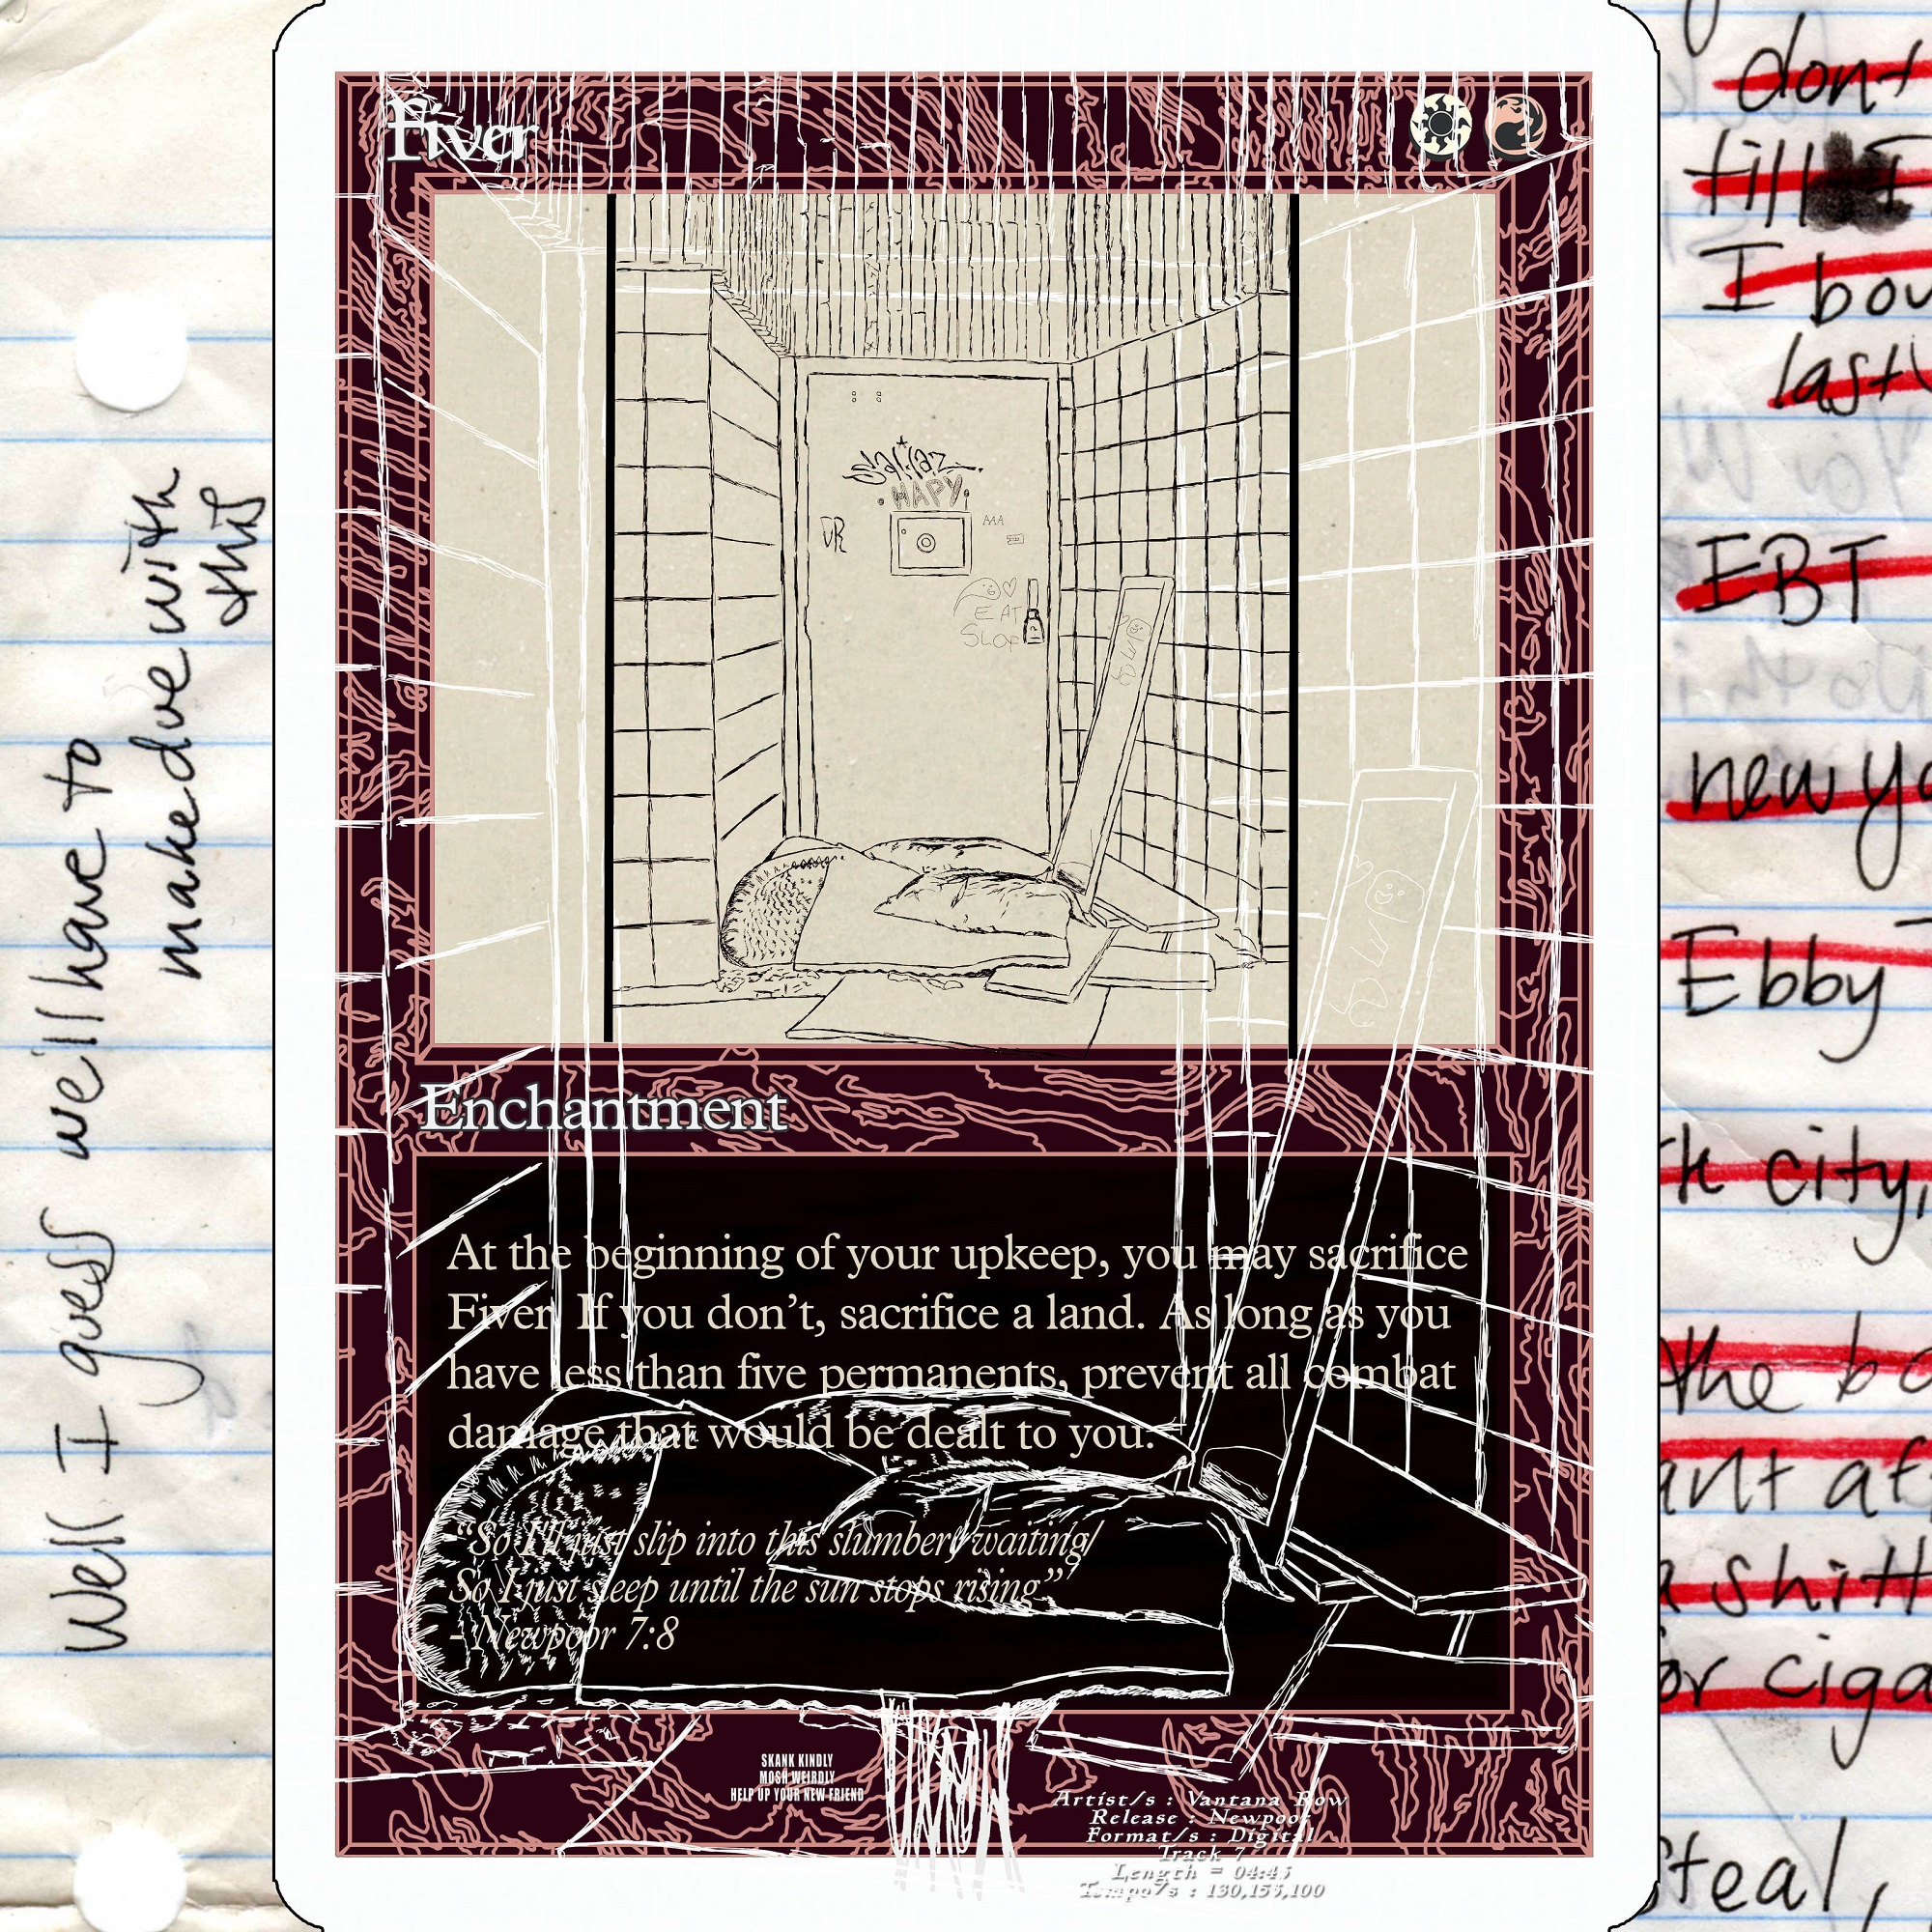 Well I guess we'll have to
make due with
this
Fiver
slaliaz
HAPY
VR
AAA
EAT
SLOP
Enchantment
At the beginning of your upkeep, you may sacrifice
Fiver. If you don't, sacrifice a land. As long as you
have less than five permanents, prevent all combat
damage that would be dealt to you.
“So I'll just slip into this slumber, waiting/
So I just sleep until the sun stops rising”
- Newpoor 7:8
SKANK KINDLY
MOSH WEIRDLY
HELP UP YOUR NEW FRIEND
Artist/s : Vantana Row
Release : Newpoor
Format/s : Digital
Track 7
Length = 04:45
Tempo/s : 130,155,100
dont
till I
I bou
last
EBT
new yo
Ebby
k city,
the bo
ant af
a shitt
or ciga
teal,